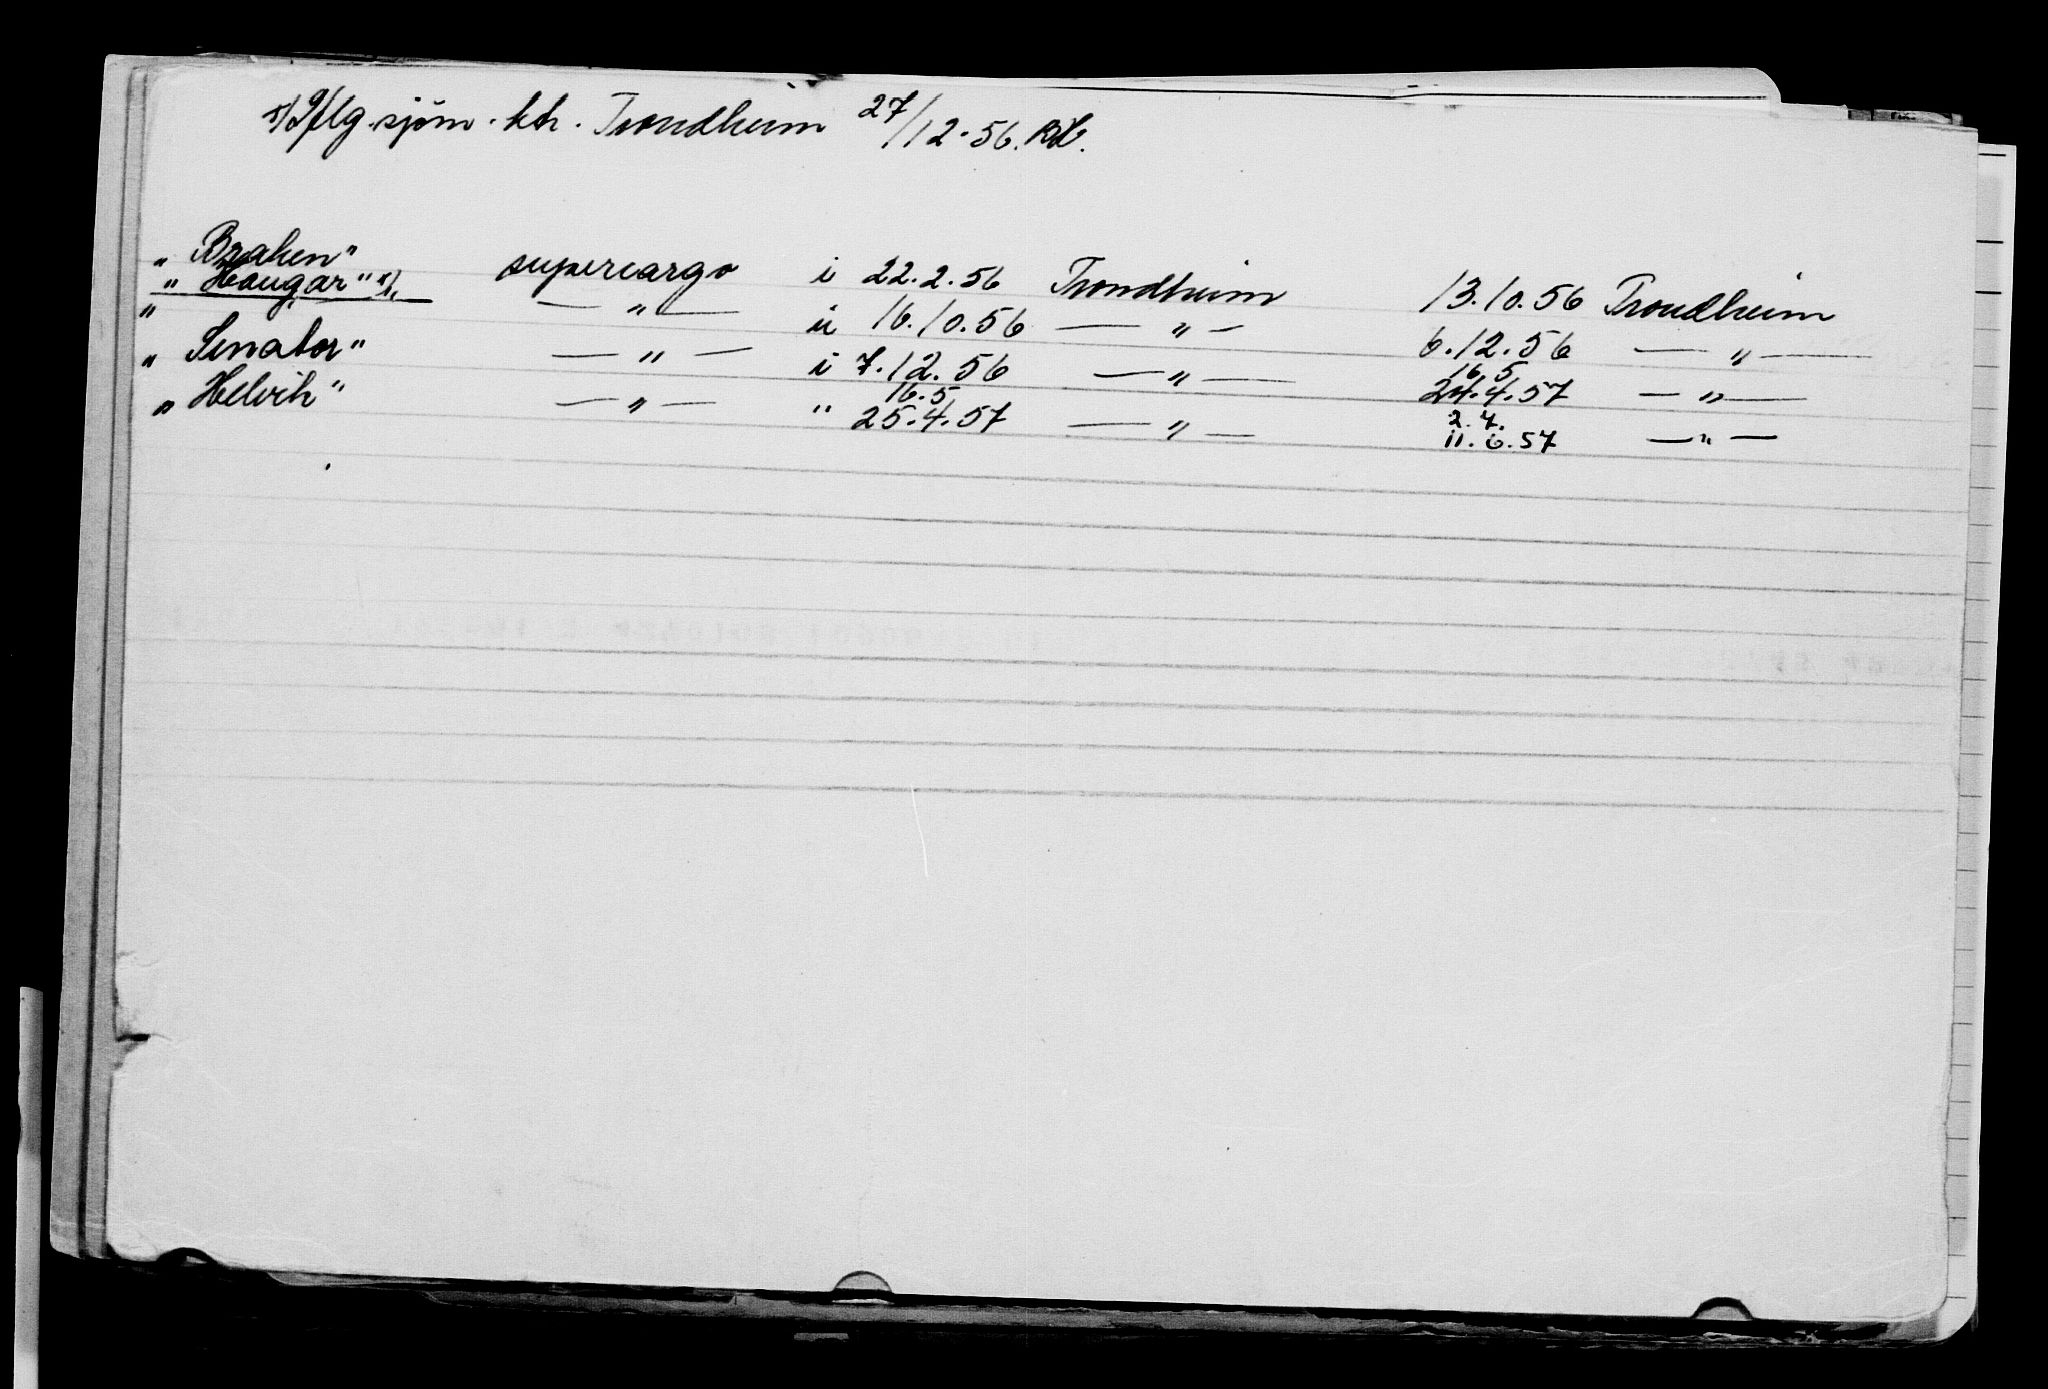 x) Iflg. sjøm. ktr. Trondheim 27/12-56. RH.
„ Braken" supercargo i 22.2.56 Trondheim 13.10.56 Trondheim
„ Haugar" x) — „ — u 16.10.56 — „ — 6.12.56 — „ —
„ Senator" — „ — i 7.12.56 — „ — 16.5 24.4.57 — „ —
„ Helvik" — „ — " 16.5 25.4.57 — „ — 2.7. 11.6.57 — „ —